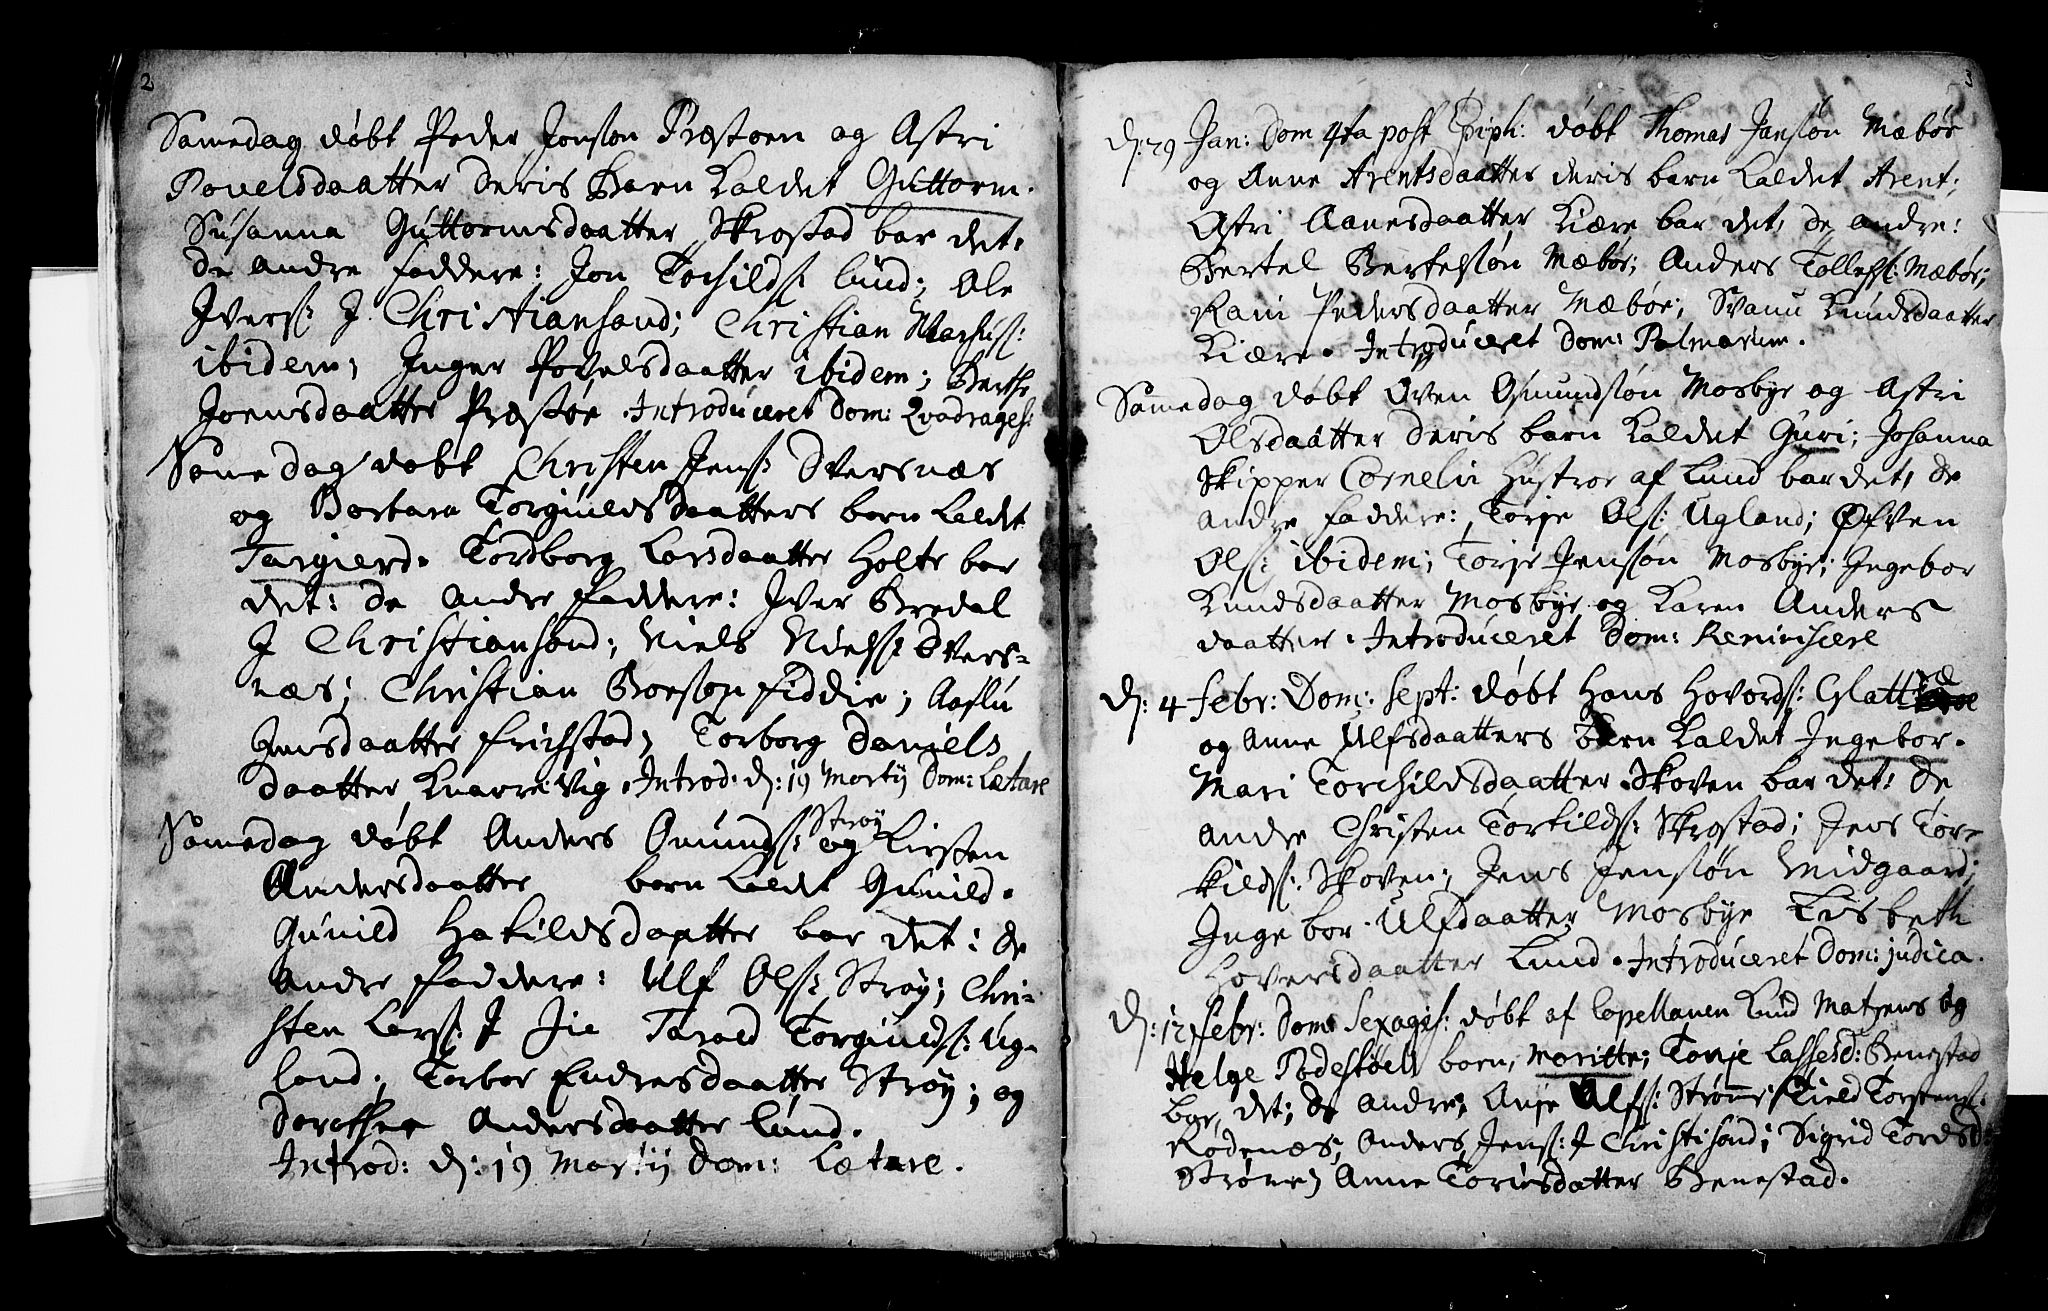 2
Samedag døbt Peder Jonsøn Præstøen og Astri
Povelsdaatter deris Barn kaldet Guttorm.
Susanna Guttormsdaatter Skrostad bar det.
de andre faddere: Jon Torkilds: lund; Ole
Ivers: I Christiansand; Christian
ibidem; Inger Povelsdaatter ibidem; Berthe
Joensdaatter Præstøe. Introduceret Dom: Qvadrages:
Same dag døbt Christen Jens: Dversnæs
og Barbara Torgiulsdaatters barn kaldet
Targierd. Tordborg Larsdaatter Holte bar
det: de andre Faddere: Iver Bredal
I Christiansand; Niels Niels: Dvers-
næs; Christian Boeson fiddie; Aaslu
Jensdaatter frichstad; Torborg Daniels
daatter Knarrevig. Introd. d: 19 Martij Dom: Lætare
Samedag døbt Anders Omunds: Strøy og Kirsten
Andersdaatter barn kaldt Gunild.
Gunild Hakildsdaatter bar det: de
andre faddere: Ulf Ols: Strøy; Chri-
sten Lars: I Jie Tarald Torgiulds: Ug-
land; Torbor Endresdaatter Strøy; og
Dorethea Andersdaatter lund.
Introd: d: 19 Martij Dom: Lætare.
3
d: 29 Jan: Dom 4ta post Epiph: døbt Thomas Jansøn Mæbøe
og Anne Arentsdaatter deris barn kaldet Arent;
Astri Aanesdaatter Kiære bar det, de andre:
Bertel Bertelsøn Mæbøe; Anders Tollefs: Mæbøe;
Rani Pedersdaatter Mæbøe; Svanu Knudsdaatter
Kiære. Introduceret Dom: Palmarum.
Samedag døbt Oven Osmundsøn Mosbye og Astri
Olsdaatter deris barn kaldet Guri; Johanna
Skipper Cornelii Hustroe af Lund bar det, de
andre faddere: Torje Ols: Ugland; Øfven
Ols: ibidem; Torje Jensøn Mosbye; Ingebor
Knudsdaatter Mosbye og Karen Anders
daatter. Introduceret Dom: Reminiscere
d: 4 febr: Dom: Sept: døbt Hans Hovords: Glatt
og Anne Ulfsdaatters Barn kaldet Ingebor.
Mari Torchildsdaatter Skoven bar det: de
andre Christen Torkilds: Skrostad; Jens Tor-
kilds: Skoven; Jens Jensøn Midgaard;
Ingebor Ulfdaatter Mosbye Lisbeth
Hoversdaatter Lund. Introduceret Dom: judica.
d: 12 febr: Dom: Sexages: døbt af Capellanen Knud Matzens og
Helge Rodestøels barn, Maritte; Tonje Lassesd: Benestad
bar det; de andre; Anje Ulfs: Strømme; Kield Torstens:
Rødenæs; Anders Jens: I Christisand; Sigrid Tordsd:
Strøme; Anne Toriusdatter Benestad.